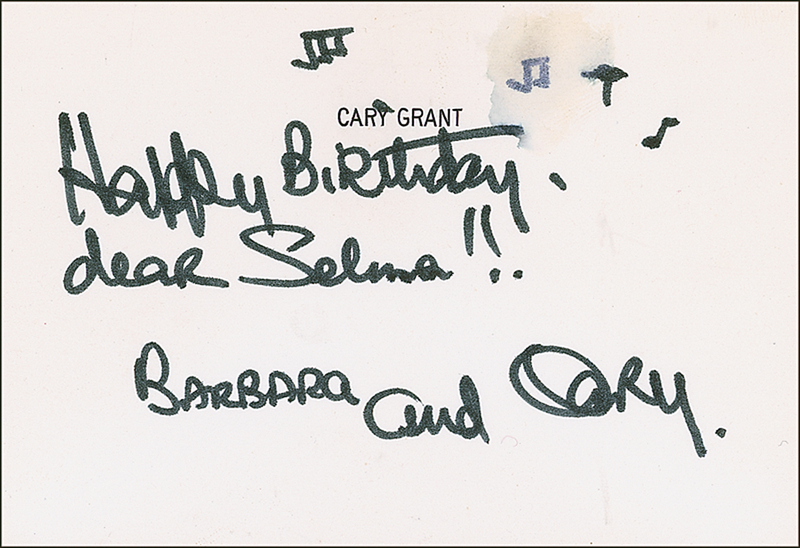 CARY GRANT
Happy Birthday.
dear Selma!!
Barbara and Cary.